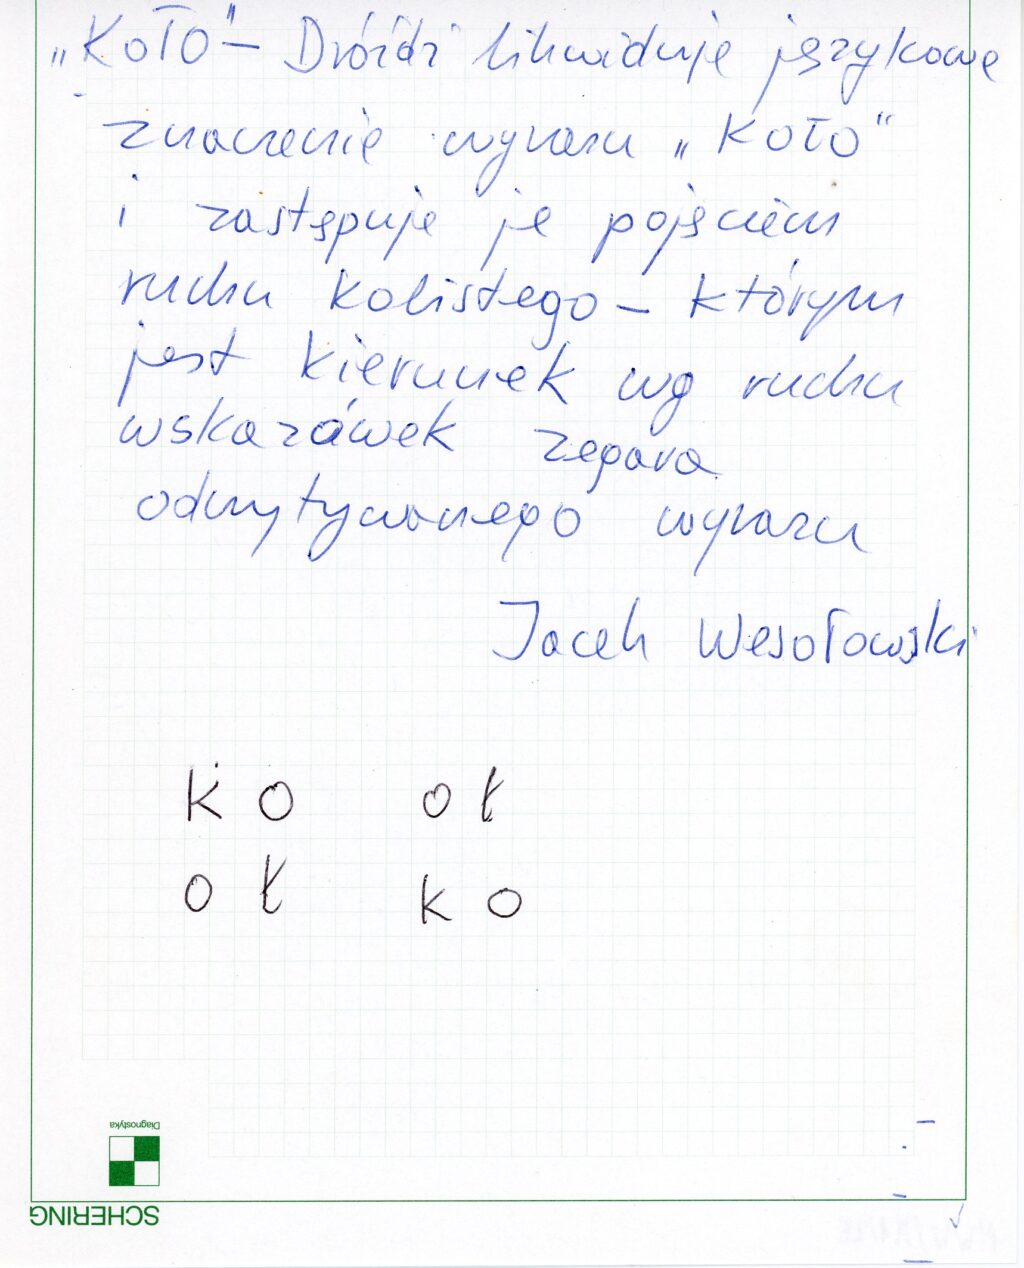 „Koło" – Dróżdż likwiduje językowe
znaczenie wyrazu „Koło"
i zastępuje je pojęciem
ruchu kolistego – którym
jest kierunek wg ruchu
wskazówek zegara
odczytywanego wyrazu
Jacek Wesołowski
k o o ł
o ł k o
Diagnostyka
SCHERING